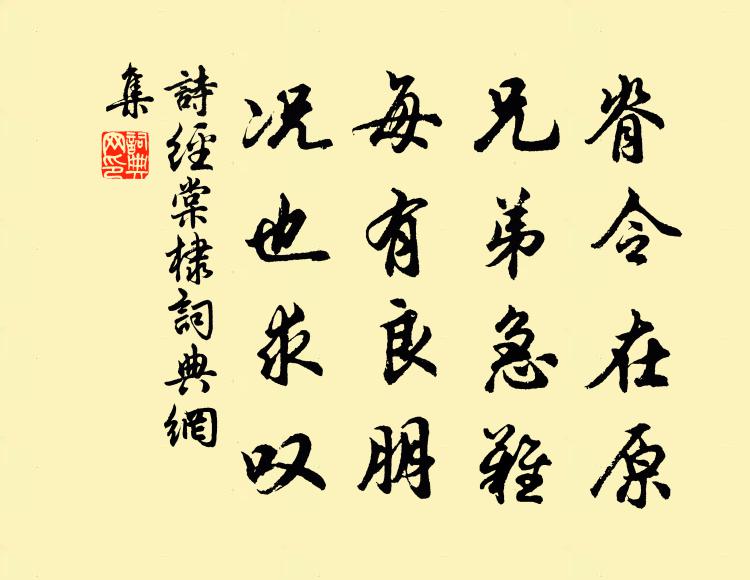 脊令在原
兄弟急難
每有良朋
况也求叹
詩經棠棣詞典網
集
詞典
网印